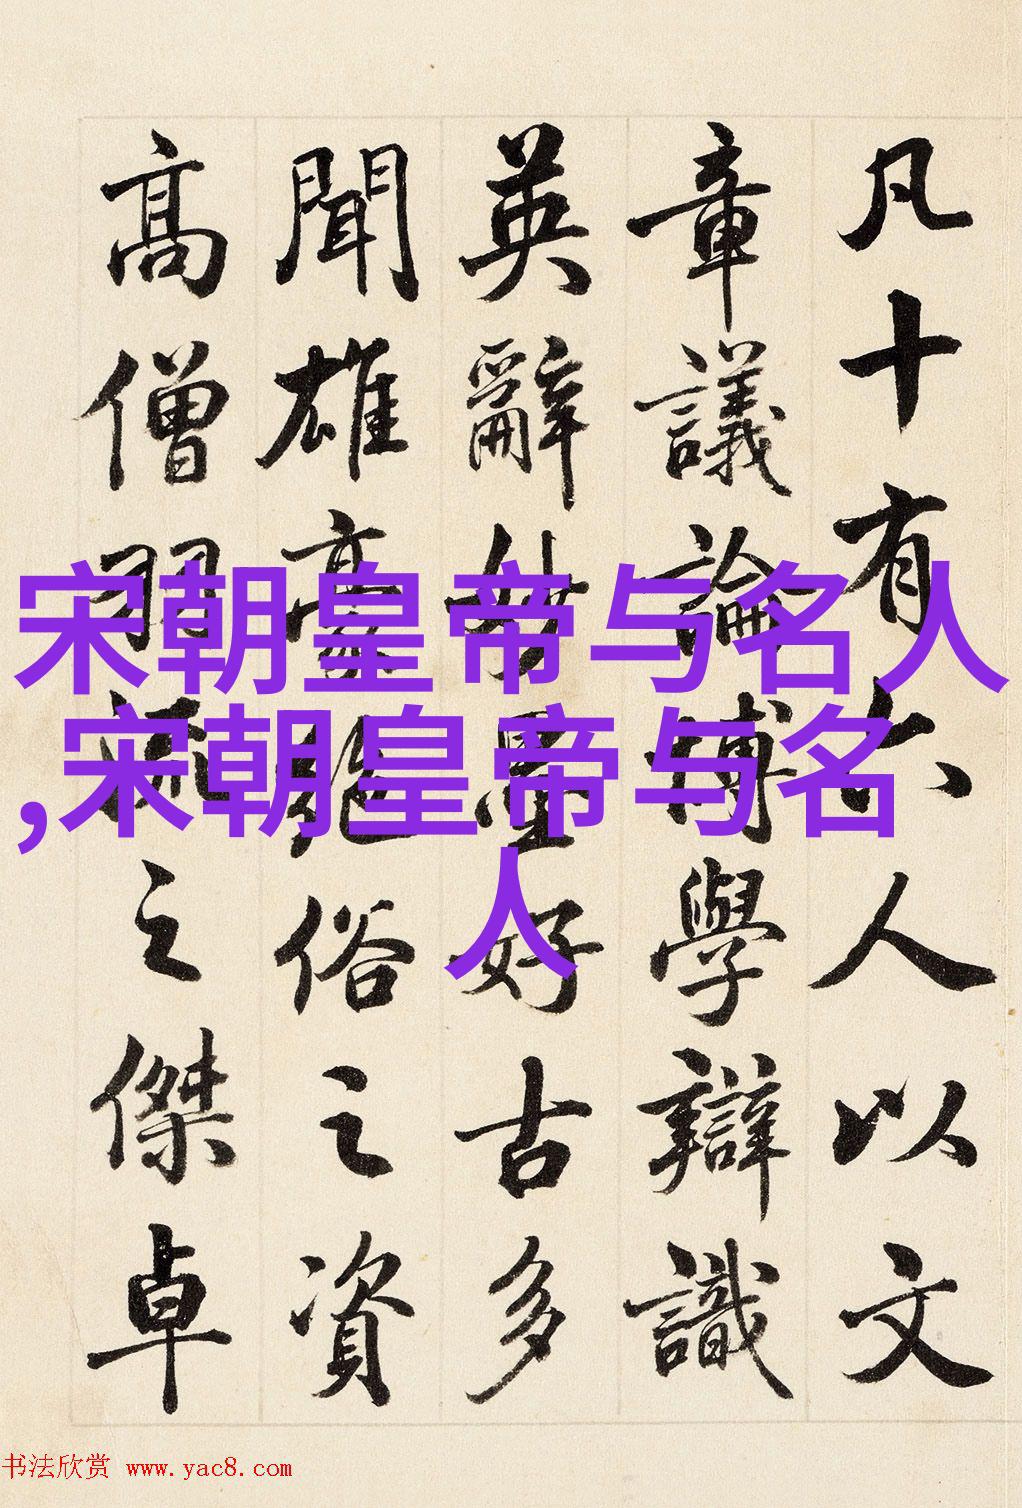 凡十有六人以文
章議論博學辯識
英辭妙墨好古多
聞雄豪絕俗之資
高僧羽流之傑卓
宋朝皇帝与名人
,宋朝皇帝与名
人
书法欣赏 www.yac8.com